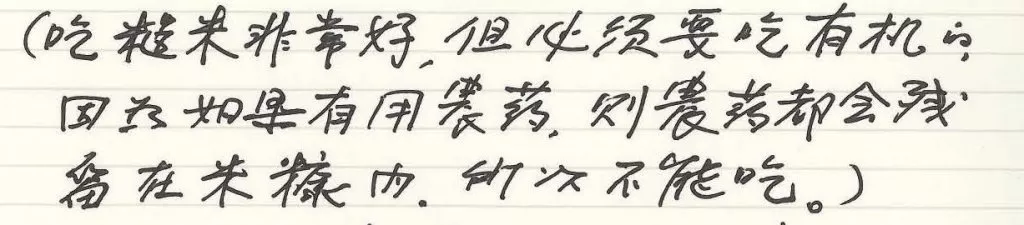 (吃糙米非常好,但必须要吃有机的,
因为如果有用農药,则農药都会残
留在米糠内.所以不能吃。)